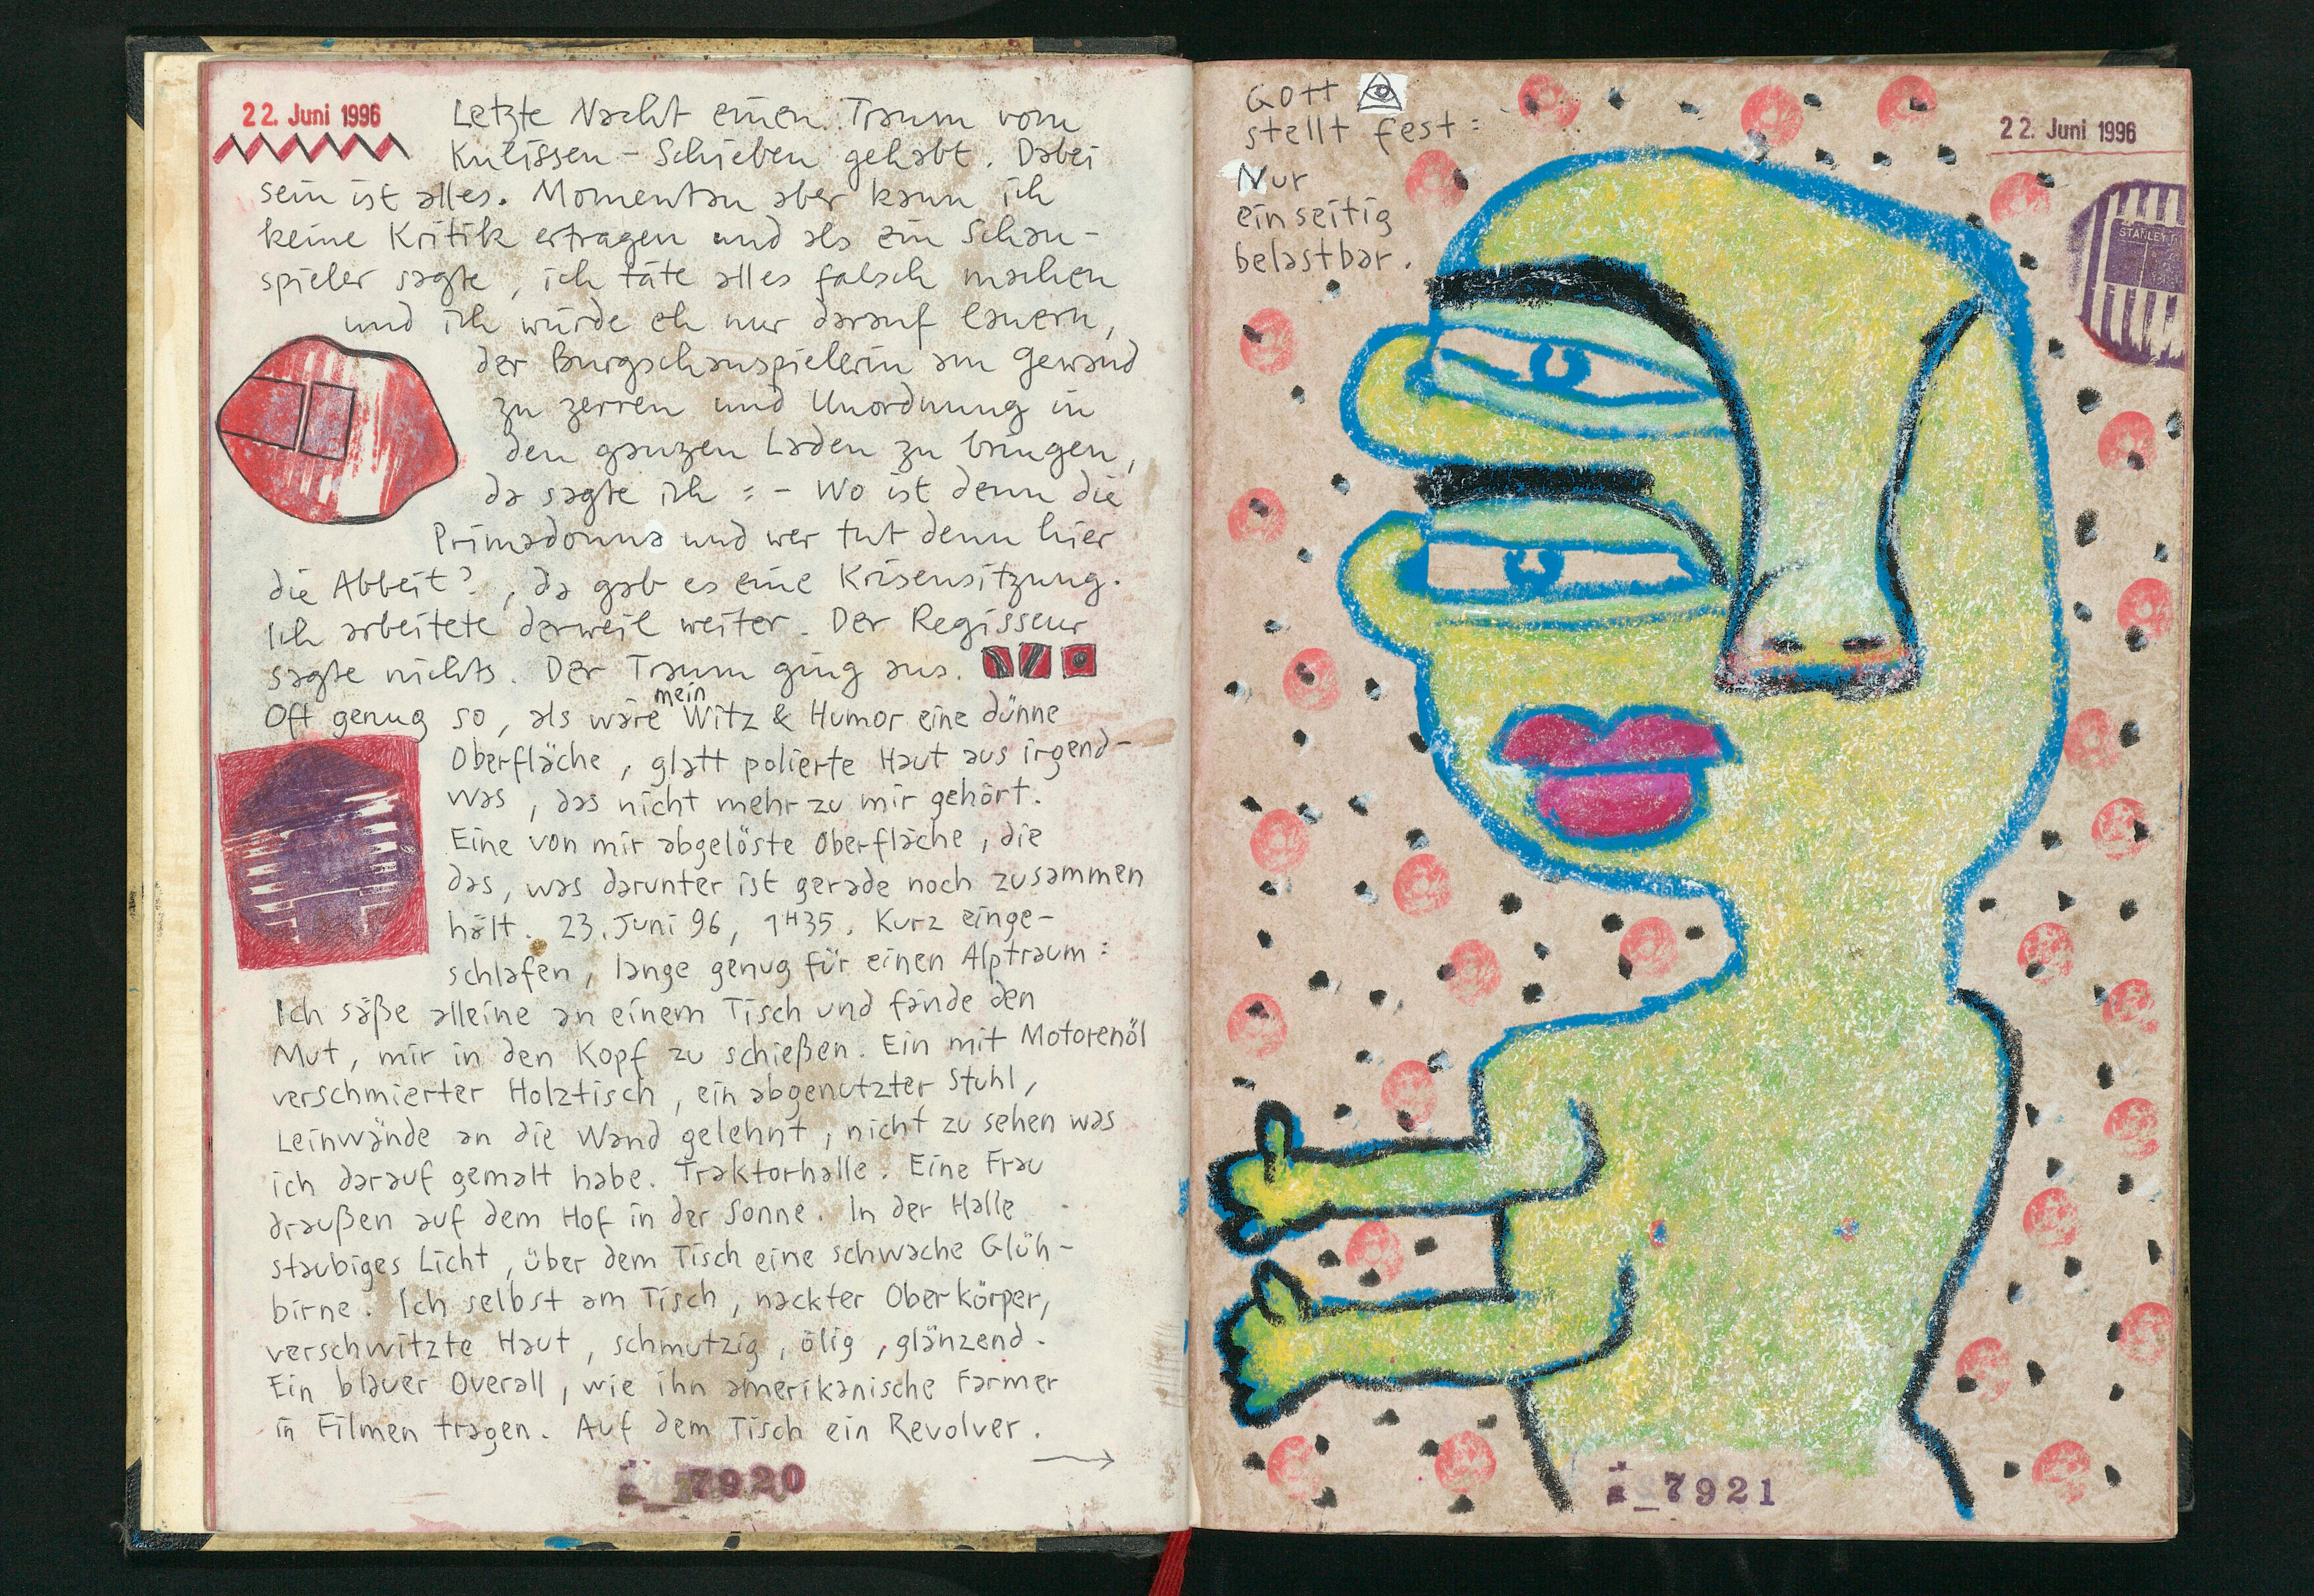 22. Juni 1996
Letzte Nacht einen Traum vom
Kulissen-Schieben gehabt. Dabei
sein ist alles. Momentan aber kann ich
keine Kritik ertragen und als ein Schau-
spieler sagte, ich täte alles falsch machen
und ich würde eh nur darauf lauern,
der Burgschauspielerin am Gewand
zu zerren und Unordnung in
den ganzen Laden zu bringen,
da sagte ich : - Wo ist denn die
Primadonna und wer tut denn hier
die Abbeit?, da gab es eine Krisensitzung.
Ich arbeitete derweil weiter. Der Regisseur
sagte nichts. Der Traum ging aus.
Oft genug so, als wäre mein Witz & Humor eine dünne
Oberfläche, glatt polierte Haut aus irgend-
was, das nicht mehr zu mir gehört.
Eine von mir abgelöste Oberfläche, die
das, was darunter ist gerade noch zusammen
hält. 23. Juni 96, 1H35. Kurz einge-
schlafen, lange genug für einen Alptraum :
Ich säße alleine an einem Tisch und fände den
Mut, mir in den Kopf zu schießen. Ein mit Motorenöl
verschmierter Holztisch, ein abgenutzter Stuhl,
Leinwände an die Wand gelehnt, nicht zu sehen was
ich darauf gemalt habe. Traktorhalle. Eine Frau
draußen auf dem Hof in der Sonne. In der Halle
staubiges Licht, über dem Tisch eine schwache Glüh-
birne. Ich selbst am Tisch, nackter Oberkörper,
verschwitzte Haut, schmutzig, ölig, glänzend.
Ein blauer Overall, wie ihn amerikanische Farmer
in Filmen tragen. Auf dem Tisch ein Revolver.
7920
Gott
stellt fest :
Nur
einseitig
belastbar.
22. Juni 1996
STANLEY
7921